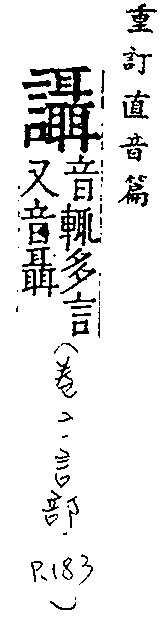 重訂直音篇
讘
音輒多言
又音聶
(卷二.言部
P.183)